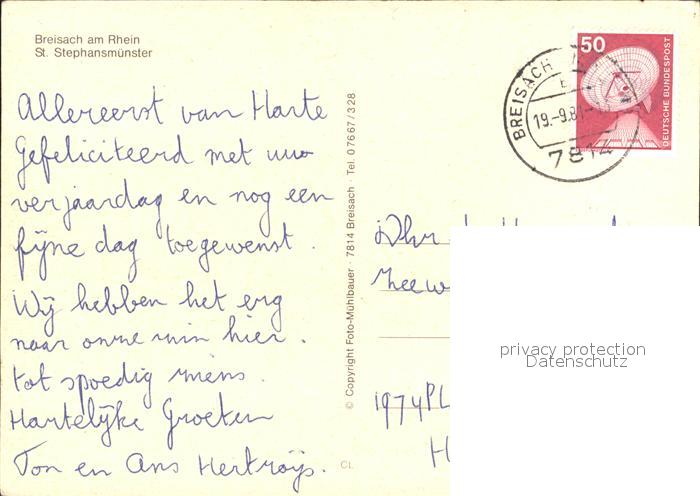 Breisach am Rhein
St. Stephansmünster
Allereerst van Harte
Gefeliciteerd met uw
verjaardag en nog een
fijne dag toegewenst.
Wij hebben het erg
naar onze zin hier.
tot spoedig ziens.
Hartelijke Groeten
Ton en Ans Hertroijs.
© Copyright Foto-Mühlbauer · 7814 Breisach · Tel. 07667/328
CL
50
DEUTSCHE BUNDESPOST
BREISACH
19.-9.81
7814
Dhr
Zeew
1974PL
H
privacy protection
Datenschutz